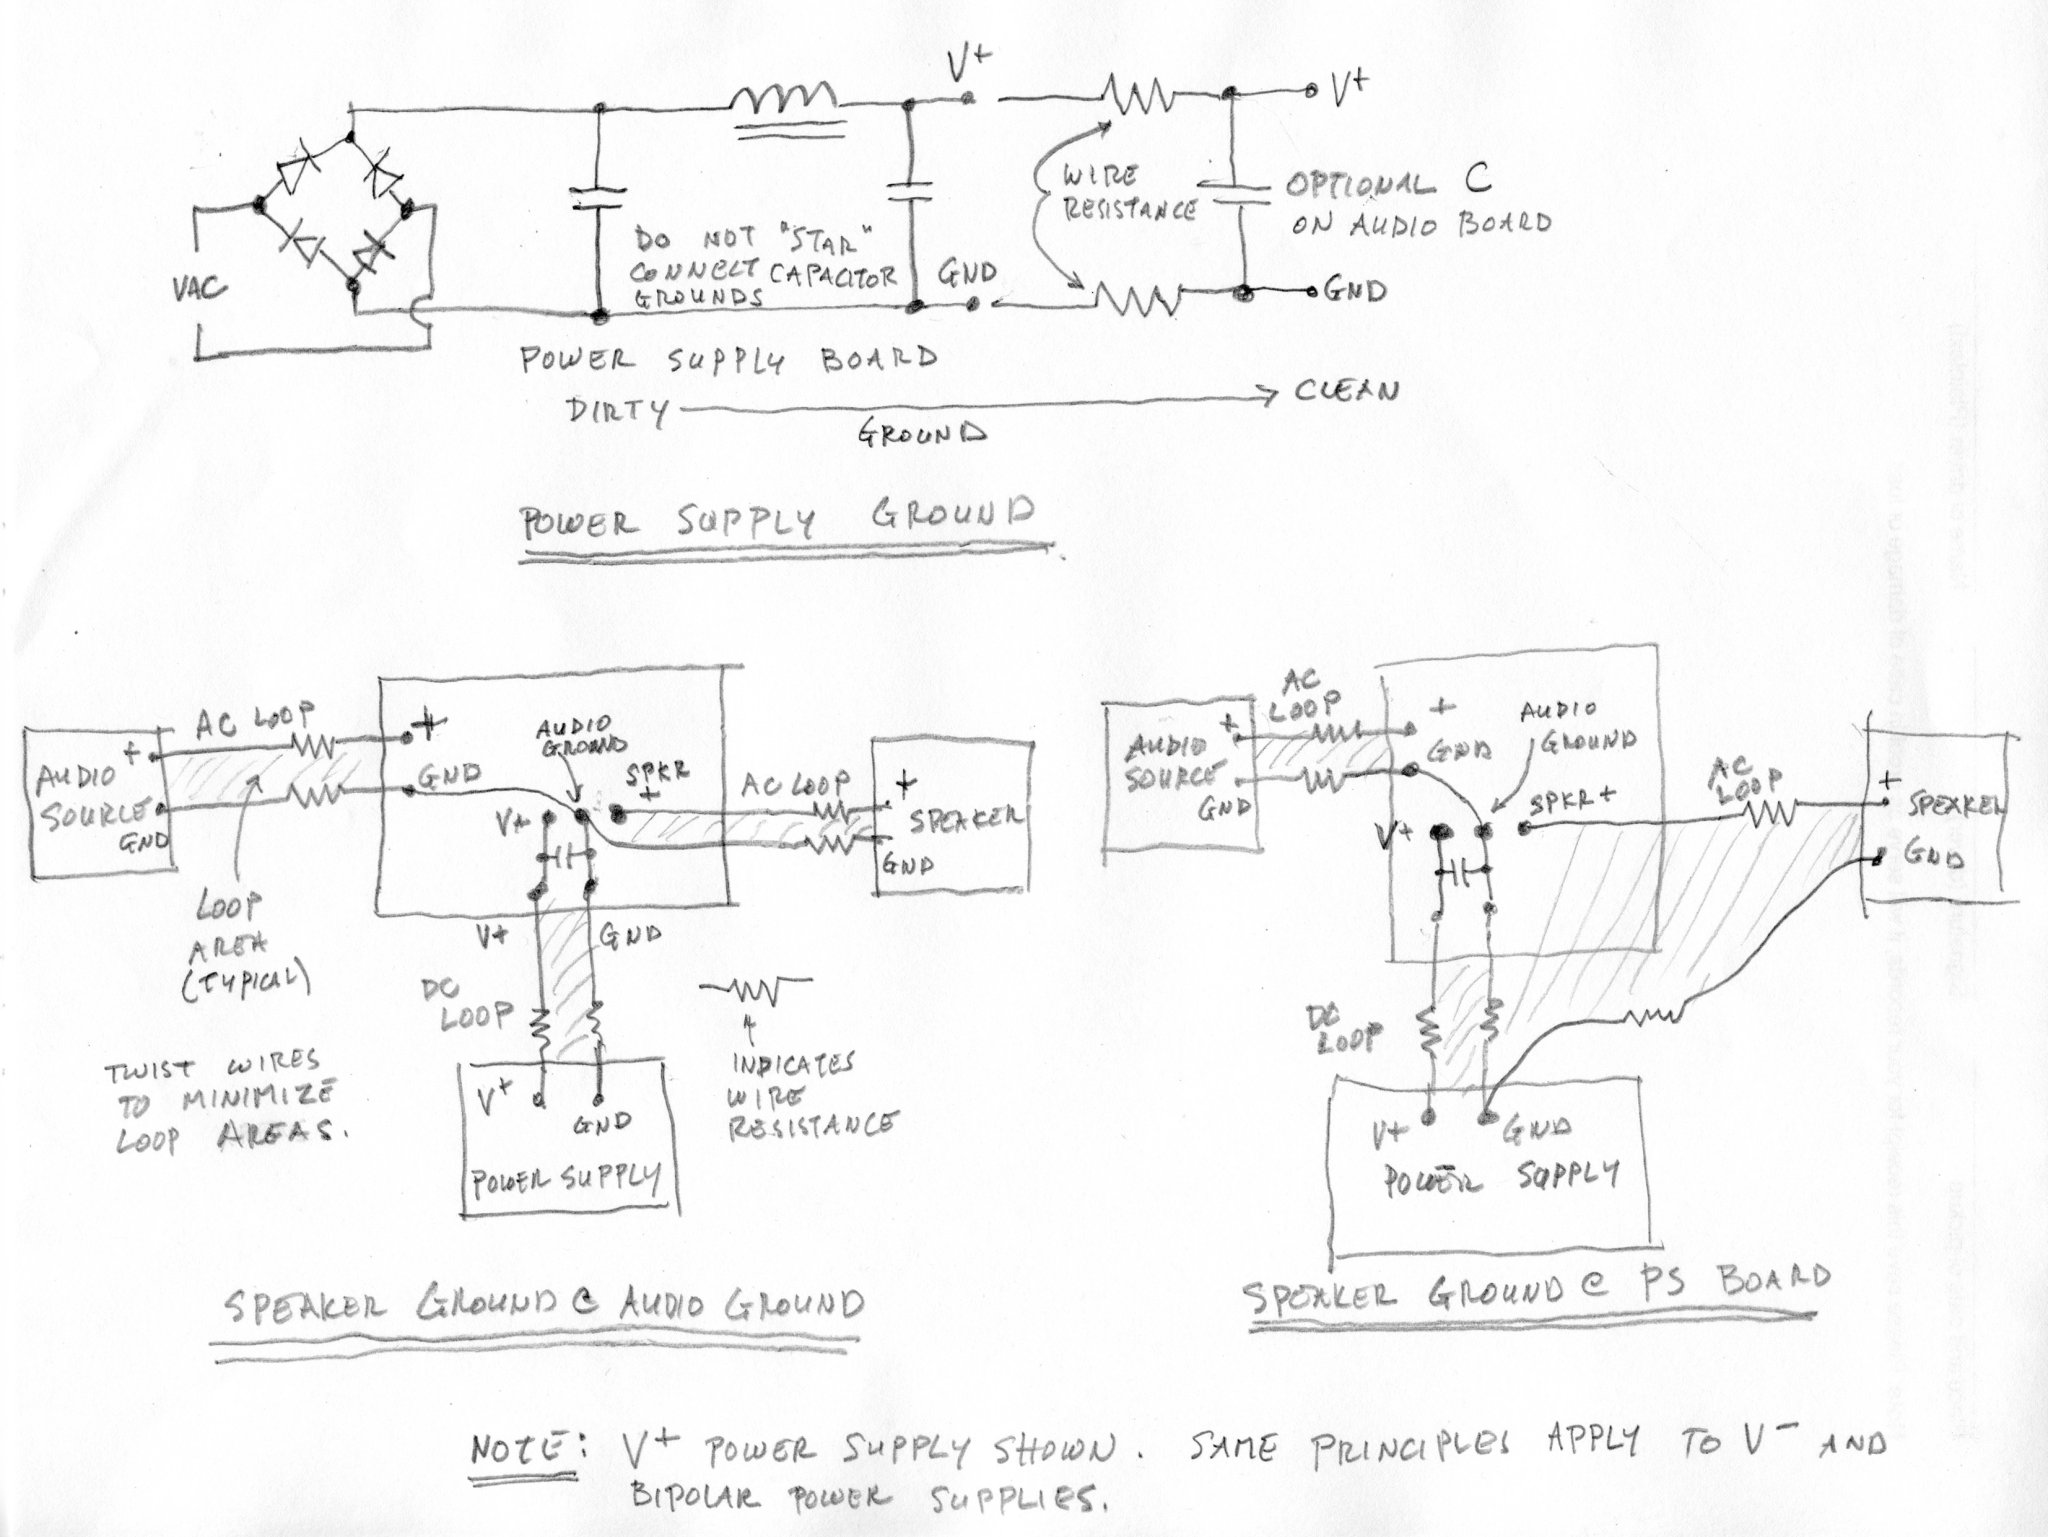 V+
V+
WIRE
RESISTANCE
OPTIONAL C
ON AUDIO BOARD
VAC
DO NOT "STAR"
CONNECT CAPACITOR
GROUNDS
GND
GND
POWER SUPPLY BOARD
DIRTY
CLEAN
GROUND
POWER SUPPLY GROUND
AUDIO
SOURCE
+
GND
AC LOOP
+
GND
AUDIO
GROUND
SPKR
+
V+
AC LOOP
+
SPEAKER
GND
LOOP
AREA
(TYPICAL)
V+
GND
DC
LOOP
TWIST WIRES
TO MINIMIZE
LOOP AREAS.
INDICATES
WIRE
RESISTANCE
V+
GND
POWER SUPPLY
SPEAKER GROUND @ AUDIO GROUND
AUDIO
SOURCE
+
GND
AC
LOOP
+
GND
AUDIO
GROUND
V+
SPKR+
AC
LOOP
+
SPEAKER
GND
DC
LOOP
V+
GND
POWER SUPPLY
SPEAKER GROUND @ PS BOARD
NOTE: V+ POWER SUPPLY SHOWN. SAME PRINCIPLES APPLY TO V- AND
BIPOLAR POWER SUPPLIES.